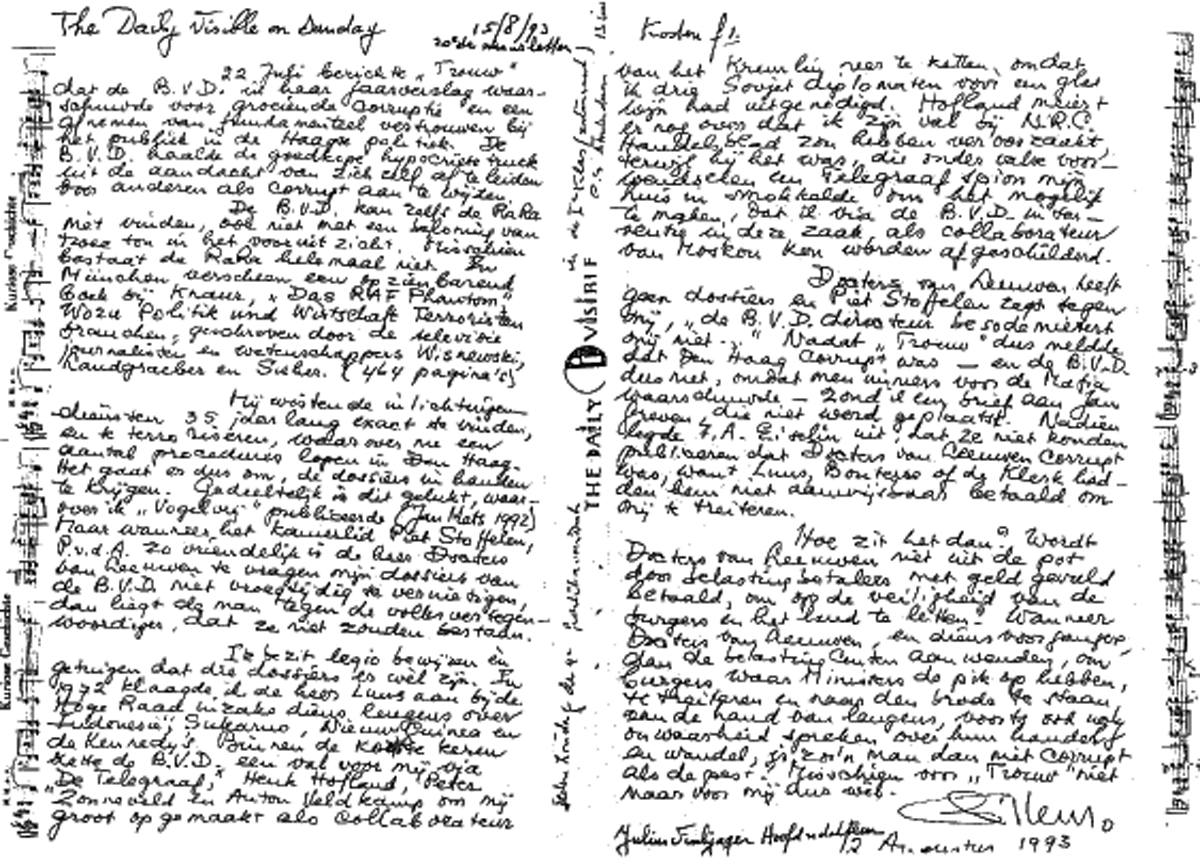 The Daily Visible on Sunday
15/8/93
20ste newsletter
22 Juli berichte „Trouw"
dat de B.V.D. in haar jaarverslag waar-
schuwde voor groeiende corruptie en een
afnemen van fundamenteel vertrouwen bij
het publiek in de Haagse politiek. De
B.V.D. haalde de goedkope hypocriete truck
uit de aandacht van zich zelf af te leiden
door anderen als corrupt aan te wijzen.
De B.V.D. kan zelfs de RaRa
niet vinden, ook niet met een beloning van
twee ton in het vooruitzicht. Misschien
bestaat de RaRa helemaal niet. In
München verscheen een opzienbarend
boek bij Knaur, „Das RAF Phantom"
Wozu Politik und Wirtschaft Terroristen
brauchen, geschreven door de televisie
journalisten en wetenschappers Wisnewski,
Landgraeber en Sieker. (464 pagina's)
Mij wisten de inlichtingen-
diensten 35 jaar lang exact te vinden,
en te terroriseren, waarover nu een
aantal procedures lopen in Den Haag.
Het gaat er dus om, de dossiers in handen
te krijgen. Gedeeltelijk is dit gelukt, waar-
over ik „Vogelvrij" publiceerde (Jan Mets 1992)
Maar wanneer het kamerlid Piet Stoffelen,
P.v.d.A. zo vriendelijk is de heer Docters
van Leeuwen te vragen mijn dossiers van
de B.V.D. niet vroegtijdig te vernietigen,
dan liegt de man tegen de volksvertegen-
woordiger, dat ze niet zouden bestaan.
Ik bezit legio bewijzen en
getuigen dat die dossiers er wel zijn. In
1972 klaagde ik de heer Luns aan bij de
Hoge Raad inzake diens leugens over
Indonesië, Sukarno, Nieuw Guinea en
de Kennedy's. Binnen de kortste keren
zette de B.V.D. een val voor mij via
„De Telegraaf," Henk Hofland, Peter
Zonneveld en Anton Veldkamp om mij
groot opgemaakt als collaborateur
Kuriose Geschichte
Kuriose Geschichte
THE DAILY VISIBLE
Kosten f 1.
van het Kremlin neer te zetten, omdat
ik drie Sovjet diplomaten voor een glas
wijn had uitgenodigd. Hofland
er nog over dat ik zijn val bij N.R.C.
Handelsblad zou hebben veroorzaakt,
terwijl hij het was, die onder valse voor-
wendselen een Telegraaf spion mijn
huis in smokkelde om het mogelijk
te maken, dat ik via de B.V.D. interventie
in deze zaak, als collaborateur
van Moskou kon worden afgeschilderd.
Docters van Leeuwen heeft
geen dossiers en Piet Stoffelen zegt tegen
mij, „de B.V.D. directeur besodemietert
mij niet.." Nadat „Trouw" dus meldde
dat Den Haag corrupt was — en de B.V.D.
dus niet, omdat men immers voor de Mafia
waarschuwde — zond ik een brief aan Jan
Greven, die niet werd geplaatst. Nadien
legde F.A. uit, dat ze niet konden
publiceren dat Docters van Leeuwen corrupt
was, want Luns, Bouterse of de Klerk had-
den hem niet aanwijsbaar betaald om
mij te treiteren.
Hoe zit het dan? Wordt
Docters van Leeuwen niet uit de pot
door belastingbetalers met geld gevuld
betaald, om op de veiligheid van de
burgers en het land te letten? Wanneer
Docters van Leeuwen, en diens voorganger,
dan de belastingcenten aanwenden, om
burgers waar Ministers de pik op hebben,
te treiteren en naar den brode te staan,
aan de hand van leugens, voorts ook nog
onwaarheid spreken over hun handel
en wandel, is zo'n man dan niet corrupt
als de pest? Misschien voor „Trouw" niet
maar voor mij dus wel.
Julius Vischjager Hoofdredakteur
12 Augustus 1993